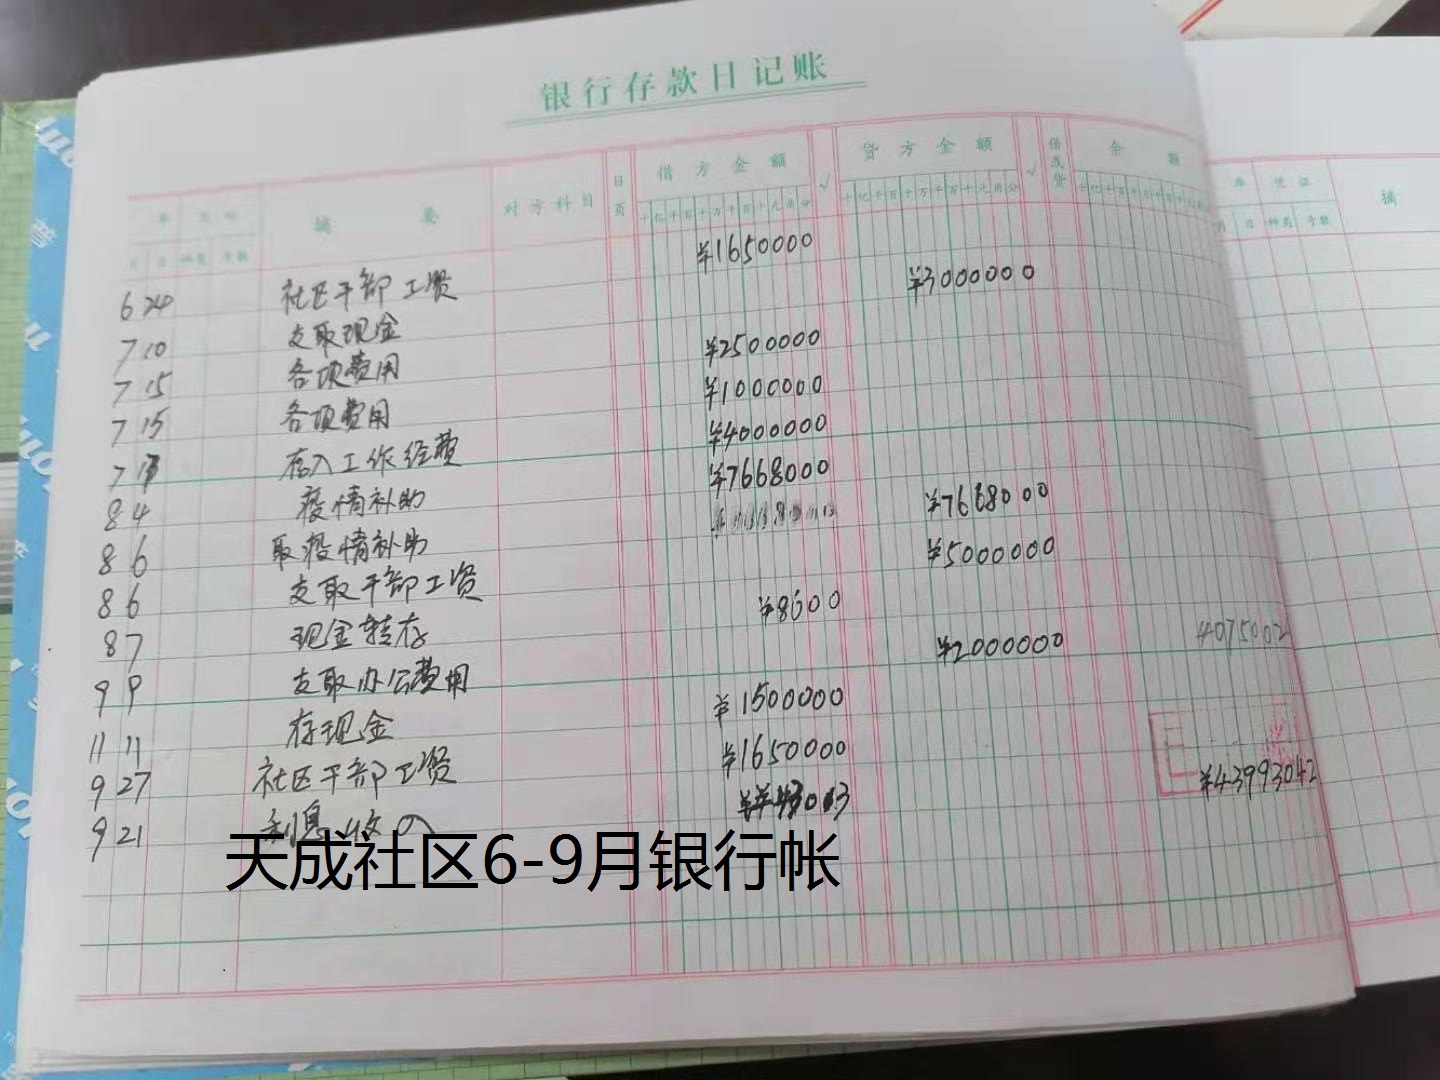 银行存款日记账
摘 要 对方科目 日页 借方金额 √ 贷方金额 √ 借或贷 余额
十亿千百十万千百十元角分 十亿千百十万千百十元角分
¥1650000
6 24 社区干部工资 ¥3000000
7 10 支取现金
7 15 各项费用 ¥2500000
7 15 各项费用 ¥1000000
7 存入工作经费 ¥4000000
8 4 疫情补助 ¥7668000
8 6 取疫情补助 ¥7668000
8 6 支取干部工资 ¥5000000
8 7 现金转存 ¥8600
9 9 支取办公费用 ¥2000000 4075002
11 11 存现金 ¥1500000
9 27 社区干部工资 ¥1650000
9 21 利息收入 ¥43993042
天成社区6-9月银行帐
凭证
月 日 种类 号数 摘